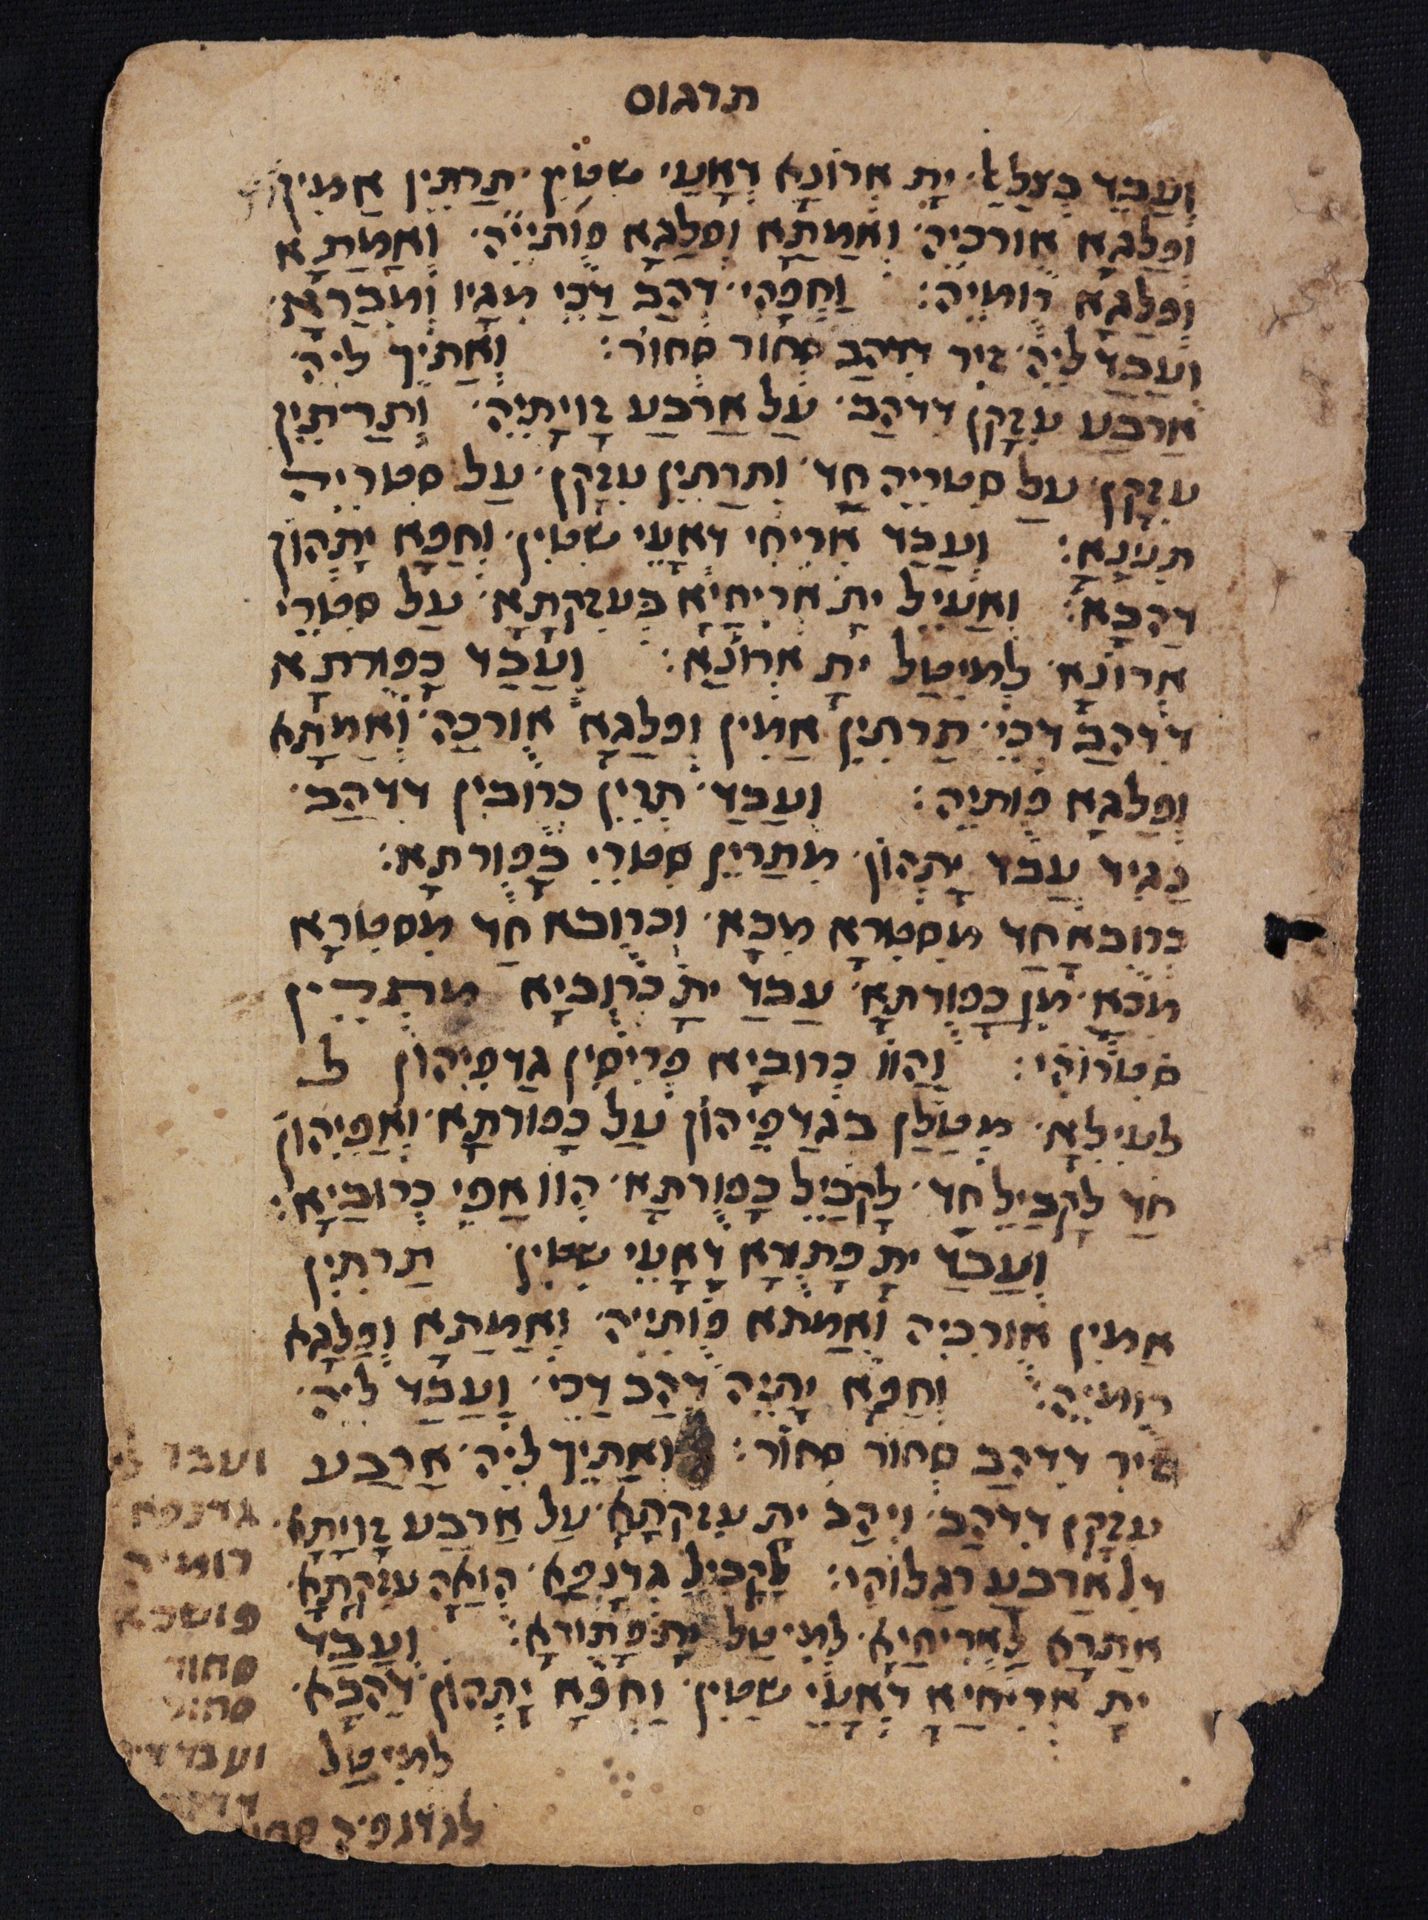 תרגום
ועבד בצלל ית ארונא דאעי שטין תרתין אמין
ופלגא אורכיה ואמתא ופלגא פותייה ואמתא
ופלגא רומיה׃ וחפהי דהב דכי מגיו ומברא
ועבד ליה זיר דדהב סחור סחור׃ ואתיך ליה
ארבע עזקן דדהב על ארבע זויתיה ותרתין
עזקן על סטריה חד ותרתין עזקן על סטריה
תנינא׃ ועבד אריחי דאעי שטין וחפא יתהון
דהבא׃ ואעיל ית אריחיא בעזקתא על סטרי
ארונא למיטל ית ארונא׃ ועבד כפורתא
דדהב דכי תרתין אמין ופלגא אורכה ואמתא
ופלגא פותיה׃ ועבד תרין כרובין דדהב
נגיד עבד יתהון מתרין סטרי כפורתא׃
כרובא חד מסטרא מכא וכרובא חד מסטרא
מכא מן כפורתא עבד ית כרוביא מתרין
סטרוהי׃ והוו כרוביא פריסין גדפיהון ל
לעילא מטלן בגדפיהון על כפורתא ואפיהון
חד לקביל חד לקביל כפורתא הוו אפי כרוביא׃
ועבד ית פתורא דאעי שטין תרתין
אמין אורכיה ואמתא פותייה ואמתא ופלגא
רומיה׃ וחפא יתיה דהב דכי ועבד ליה
זיר דדהב סחור סחור׃ ואתיך ליה ארבע
עזקן דדהב ויהב ית עזקתא על ארבע זויתא
דלארבע רגלוהי׃ לקביל גדנפא הואה עזקתא
אתרא לאריחיא למיטל ית פתורא׃ ועבד
ית אריחיא דאעי שטין וחפא יתהון דהבא
למיטל
ועבד
גדנפא
רומיה
פושכא
סחור
סחור
ועבד זיר
דדהב
לגדנפיה